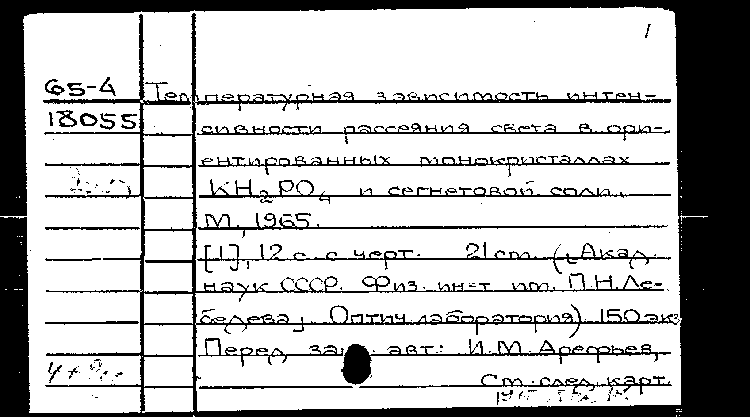 1
65-4 Температурная зависимость интен-
18055 сивности рассеяния света в ори-
ентированных монокристаллах
KH2PO4 и сегнетовой соли.
М., 1965.
[1], 12 с. с черт. 21 cm. (Акад.
наук СССР. Физ. ин-т им. П.Н. Ле-
бедева, Оптич. лаборатория) 150 экз.
Перед загл. авт.: И.М. Арефьев,
См. след. карт.